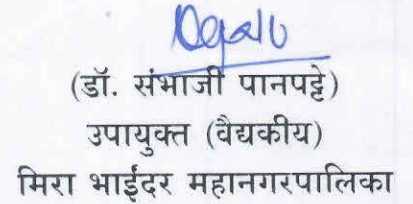 (डॉ. संभाजी पानपट्टे)
उपायुक्त (वैद्यकीय)
मिरा भाईंदर महानगरपालिका